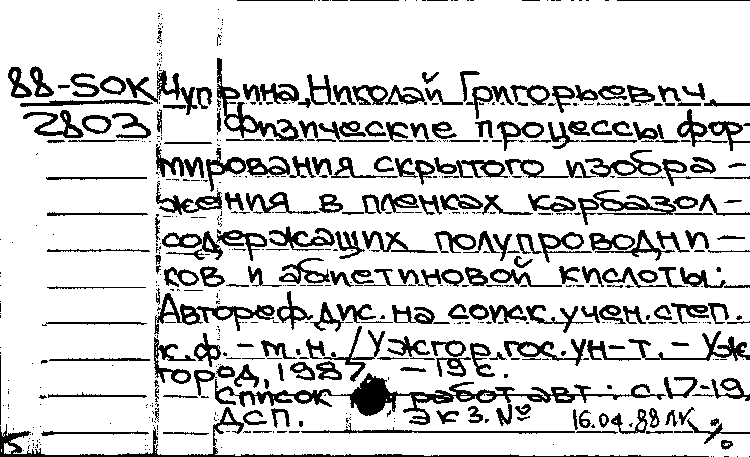 88-50К Чуприна, Николай Григорьевич.
2803 Физические процессы фор-
мирования скрытого изобра-
жения в пленках карбазол-
содержащих полупроводни-
ков и абиетиновой кислоты:
Автореф. дис. на соиск. учен. степ.
к.ф.-м.н. / Ужгор. гос. ун-т. - Уж-
город, 1987. - 19 с.
Список работ авт.: с. 17-19.
ДСП. Экз. №
16.04.88 ЛК